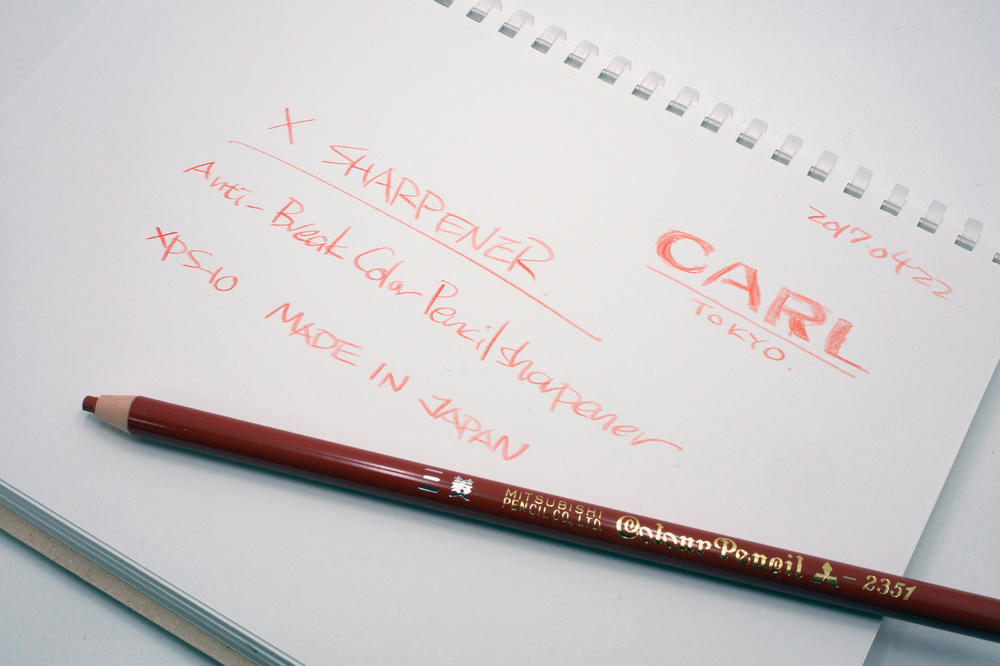 X SHARPENER
Anti-Break Color Pencil sharpener
XPS-10
MADE IN JAPAN
CARL
TOKYO.
2017.04.22.
三菱
MITSUBISHI
PENCIL CO., LTD.
Colour Pencil - 2351